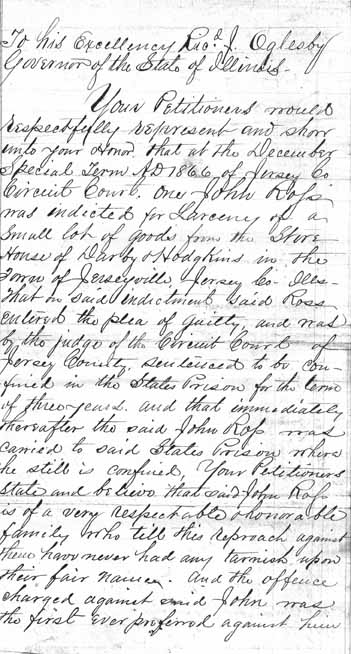 To his Excellency Ricd. J. Oglesby
Governor of the State of Illinois-
Your Petitioners would
respectfully represent and show
unto your Honor, that at the December
Special Term AD 1866 of Jersey Co
Circuit Court. One John Ross
was indicted for Larceny of a
Small lot of goods from the Store
House of Darby & Hodgkins in the
Town of Jerseyville Jersey Co. Ills-
That on said indictment said Ross
entired the plea of guilty and was
by the judge of the Circuit Court of
Jersey County, sentenced to be con-
fined in the States Prison for the term
of three years. and that immediately
thereafter the said John Ross was
carried to said States Prison where
he still is confined, Your Petitioners
State and believe that said John Ross
is of a very respectable & honorable
family who till this reproach against
them have never had any tarnish upon
their fair name. And the offence
charged against said John was
the first ever preferred against him